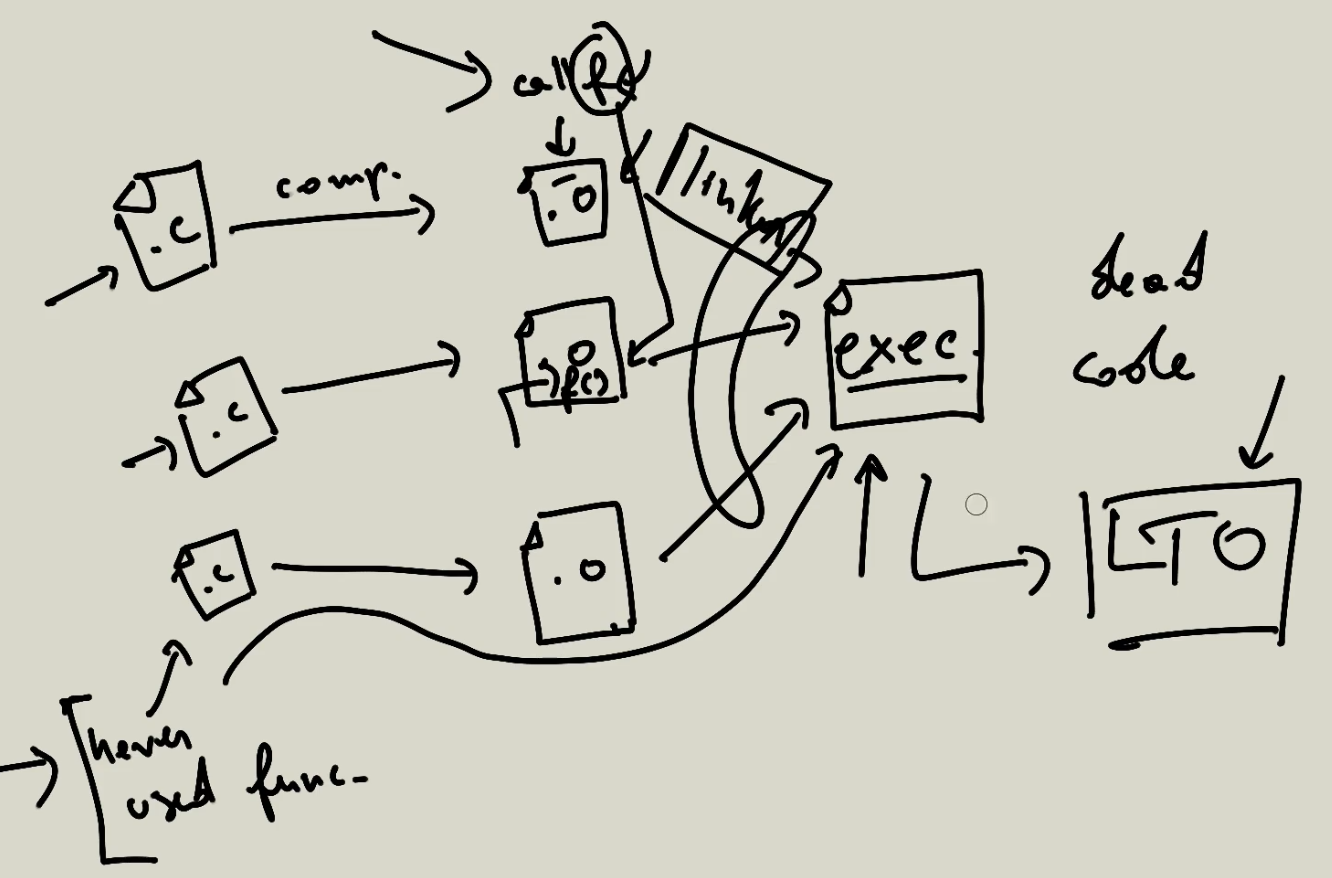 call f()
.c
comp.
.o
linker
.c
.o
f()
exec.
dead
code
.c
.o
LTO
never
used func.